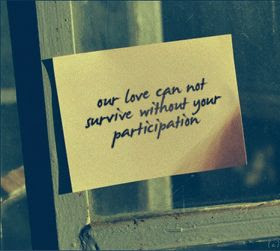 our love can not
survive without your
participation